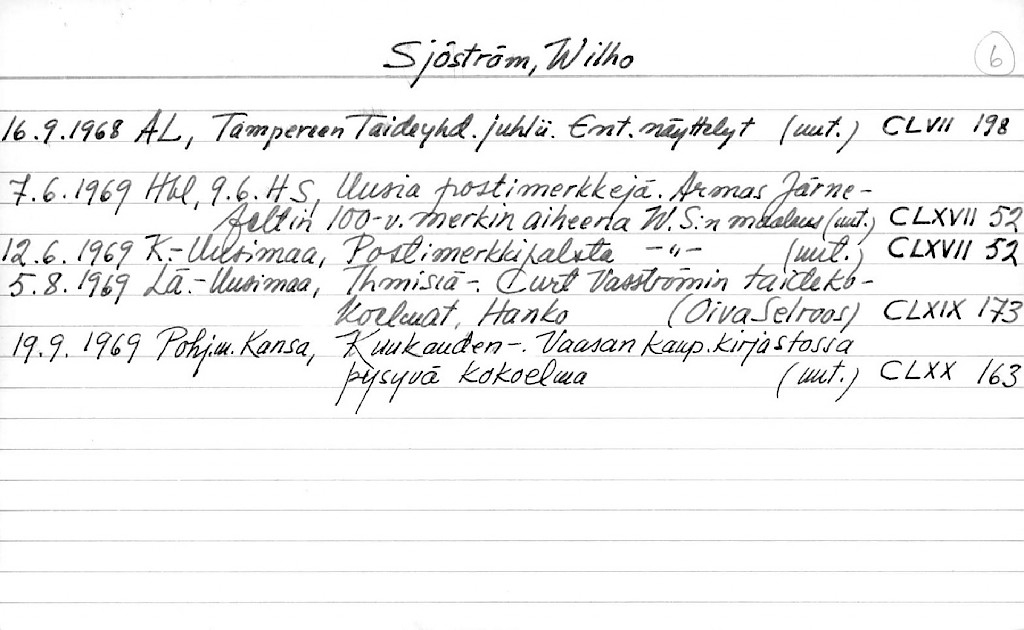 Sjöström, Wilho 6
16.9.1968 AL, Tampereen Taideyhd. juhlii. Ent. näyttelyt (uut.) CLVII 198
7.6.1969 Hbl, 9.6. HS, Uusia postimerkkejä. Armas Järne-
feltin 100-v. merkin aiheena W.S:n maalaus (uut.) CLXVII 52
12.6.1969 K.-Uusimaa, Postimerkkipalsta -"- (uut.) CLXVII 52
5.8.1969 Lä.-Uusimaa, Ihmisiä -. Curt Vasströmin taideko-
koelmat, Hanko (Oiva Selroos) CLXIX 173
19.9.1969 Pohj.m. Kansa, Kuukauden -. Vaasan kaup. kirjastossa
pysyvä kokoelma (uut.) CLXX 163